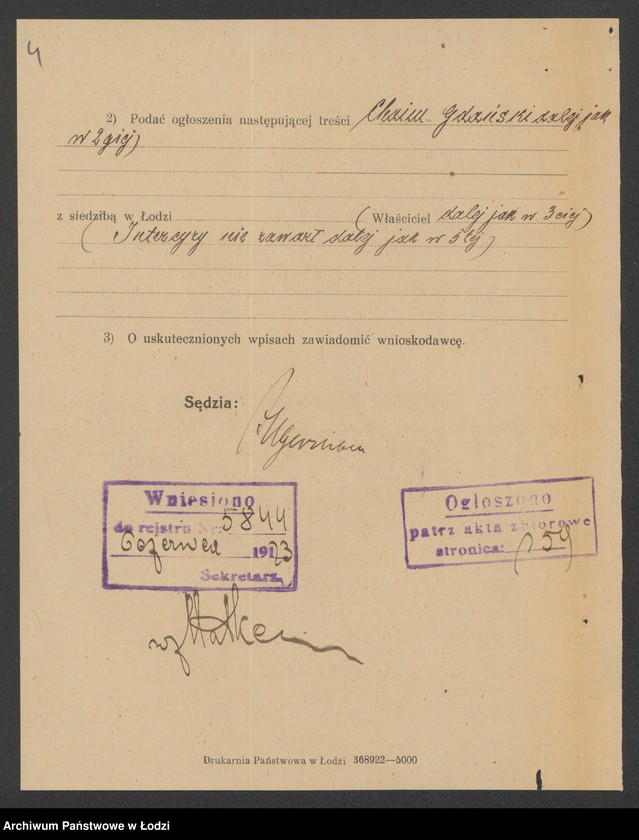 4
2) Podać ogłoszenia następującej treści Chaim Gdański dalej jak
w 2giej)
z siedzibą w Łodzi (Właściciel dalej jak w 3ciej)
(Intercyzy nie zawarł dalej jak w 5tej)
3) O uskutecznionych wpisach zawiadomić wnioskodawcę.
Sędzia:
Wniesiono
do rejstru Nr. 5844
6 czerwca 1923
Sekretarz
Ogłoszono
patrz akta zbiorowe
stronica: 59
wz
Drukarnia Państwowa w Łodzi 368922—5000
Archiwum Państwowe w Łodzi